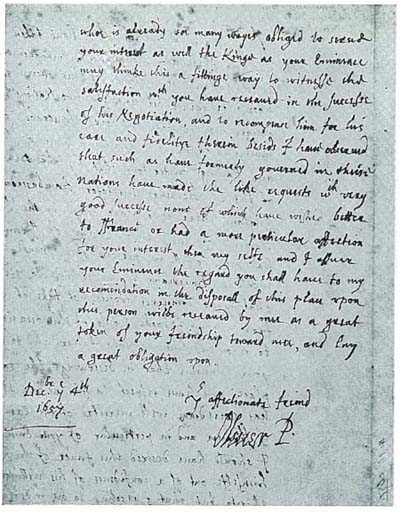 who is already so many wayes obliged to serve
your interest as well the Kings as your Eminence
may thinke this a fittinge way to witnesse the
satisfaction wch you have receaved in the successe
of his Negotiation, and to recompence him for his
care and fidelitye therein besids I have observed
that such as have formerly governed in these
nations have made the like requests wth very
good successe none of which have wished better
to ffrance or had a more perticular affection
for your interest, then my selfe and I assure
your Eminence the regard you shall have to my
recomendation in the disposall of this place upon
this person wilbe receaved by mee as a great
token of your friendship toward mee, and lay
a great obligation upon
Decbr ye 4th
1657.
Yr affectionate friend
Oliver P.